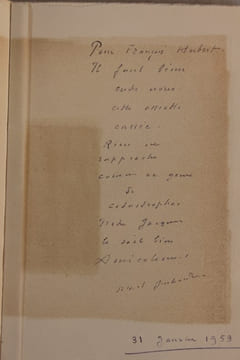 Pour François Hubert
Il faut bien
entre nous
cette assiette
cassée.
Rien ne
rapproche
comme ce genre
de
catastrophes
Jacques
le sait bien
Amicalement
31 Janvier 1959